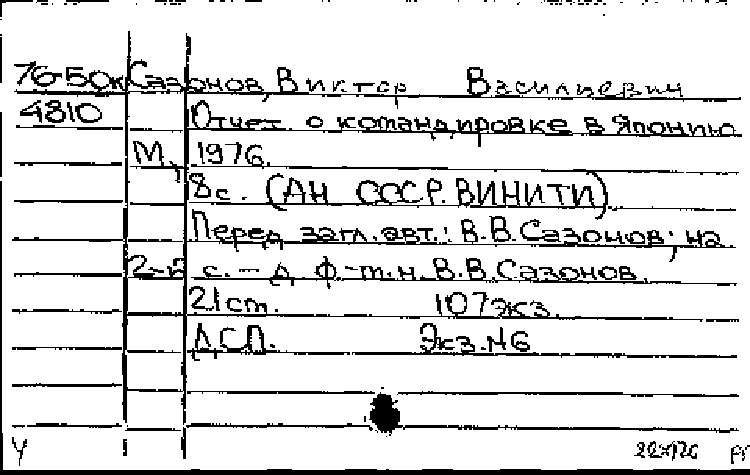 76-50к Сазонов, Виктор Васильевич
4810 Отчет о командировке в Японию
М, 1976.
8с. (АН СССР. ВИНИТИ)
Перед загл. авт.: В.В. Сазонов; на
2-й с. - д. ф-т.н. В.В. Сазонов.
21 ст. 107 экз.
ДСП. Экз. №6
У